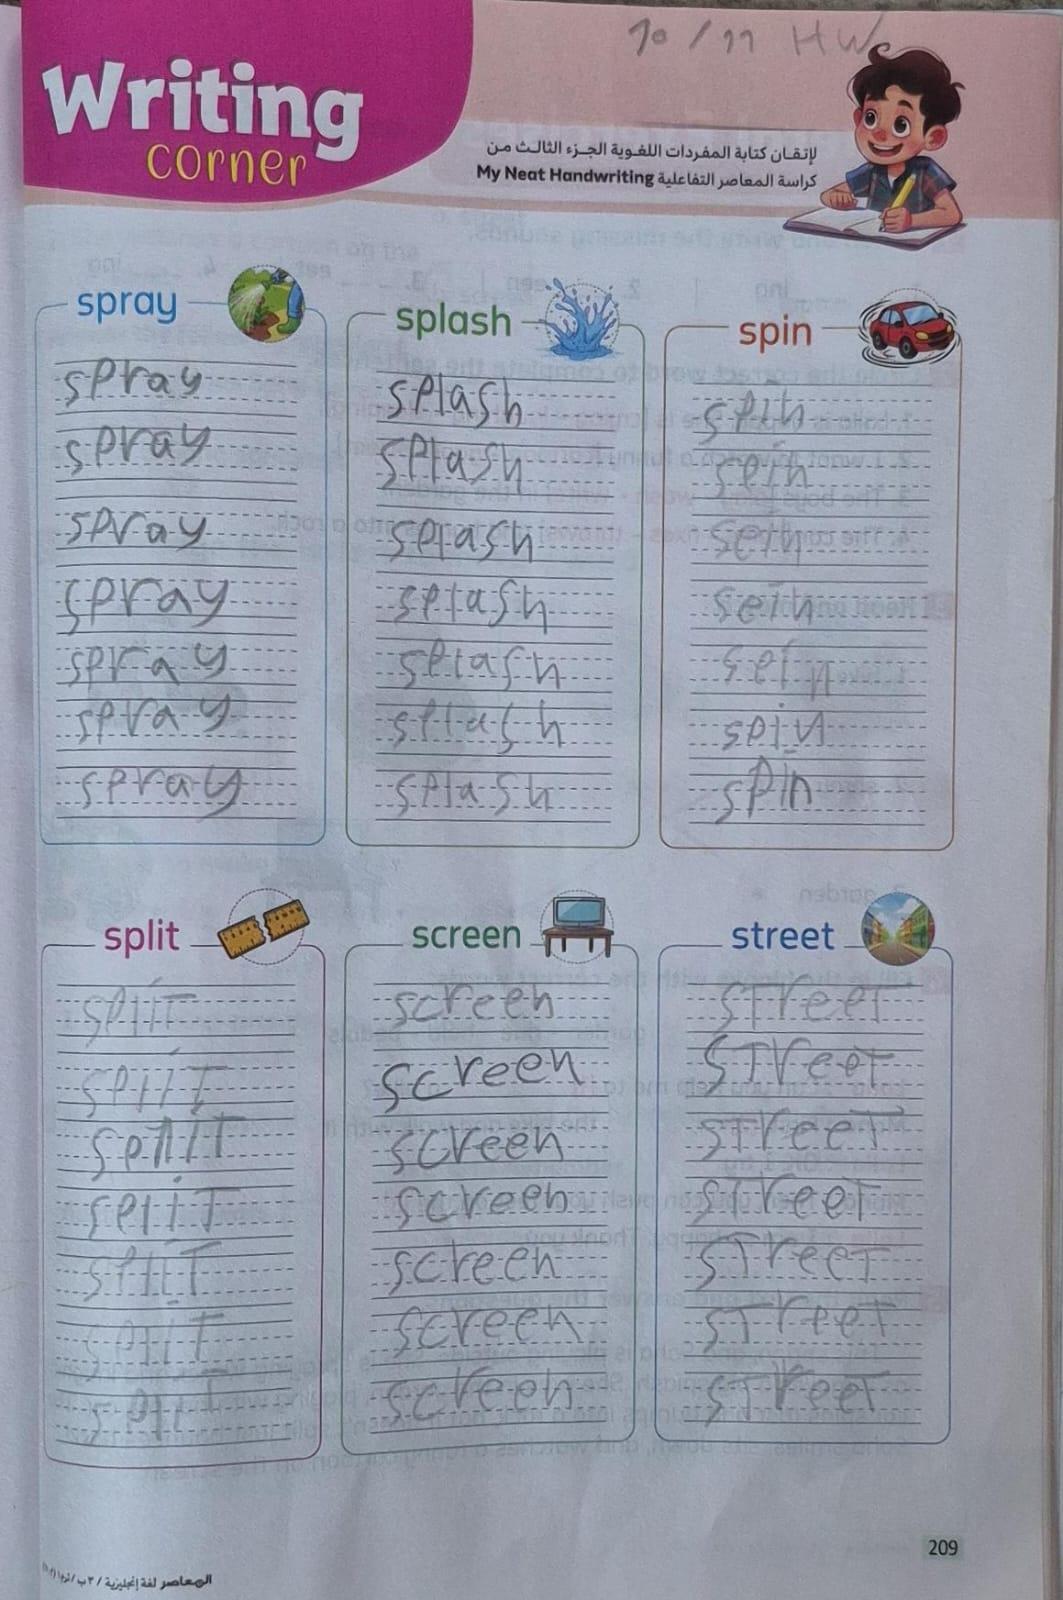 10 / 11 HW
Writing
corner
لإتقـان كتابة المفردات اللغوية الجـزء الثالـث مـن
كراسة المعاصر التفاعلية My Neat Handwriting
spray
spray
spray
spray
spray
spray
spray
spray
splash
splash
splash
splash
splash
splash
splash
splash
spin
spin
spin
spin
spin
spin
spin
spin
split
spliT
spliT
spliT
spliT
spliT
spliT
spliT
screen
screen
screen
screen
screen
screen
screen
screen
street
STreeT
STreeT
STreeT
STreeT
STreeT
STreeT
STreeT
209
المعاصر لغة إنجليزية / ٣ ب / ترم ١